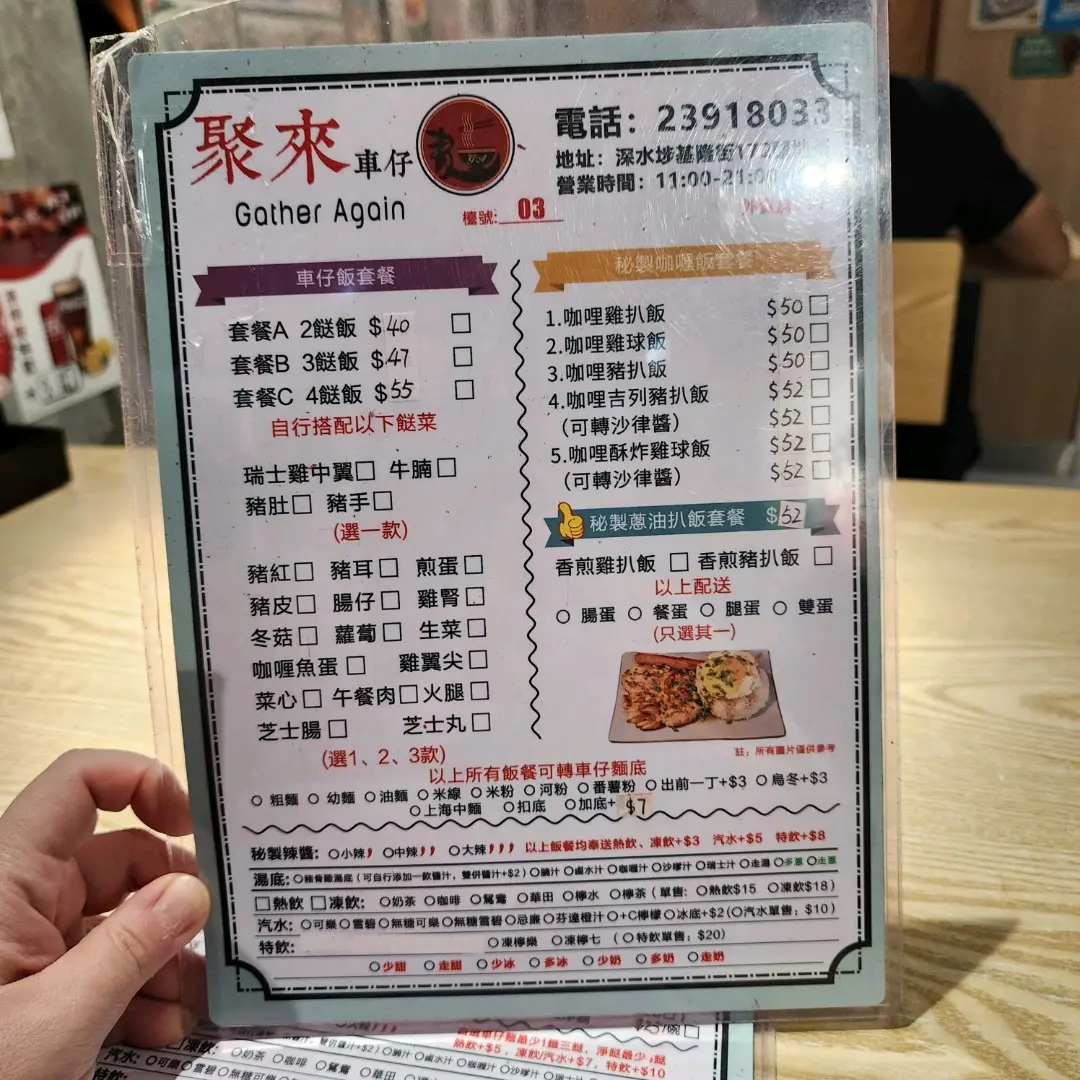 聚來車仔麵
Gather Again
電話：23918033
地址：深水埗基隆街
營業時間：11:00-21:00
檯號: 03
車仔飯套餐
套餐A 2餸飯 $40 □
套餐B 3餸飯 $47 □
套餐C 4餸飯 $55 □
自行搭配以下餸菜
瑞士雞中翼□ 牛腩□
豬肚□ 豬手□
(選一款)
豬紅□ 豬耳□ 煎蛋□
豬皮□ 腸仔□ 雞腎□
冬菇□ 蘿蔔□ 生菜□
咖喱魚蛋□ 雞翼尖□
菜心□ 午餐肉□ 火腿□
芝士腸□ 芝士丸□
(選1、2、3款)
秘製咖喱飯套餐
1.咖哩雞扒飯 $50 □
2.咖哩雞球飯 $50 □
3.咖哩豬扒飯 $50 □
4.咖哩吉列豬扒飯 $52 □
(可轉沙律醬) $52 □
5.咖哩酥炸雞球飯 $52 □
(可轉沙律醬) $52 □
秘製蔥油扒飯套餐 $52
香煎雞扒飯 □ 香煎豬扒飯 □
以上配送
○ 腸蛋 ○ 餐蛋 ○ 腿蛋 ○ 雙蛋
(只選其一)
註：所有圖片僅供參考
以上所有飯餐可轉車仔麵底
○ 粗麵 ○ 幼麵 ○油麵 ○米線 ○米粉 ○河粉 ○番薯粉 ○出前一丁+$3 ○烏冬+$3
○上海中麵 ○扣底 ○加底+ $7
秘製辣醬：○小辣 ○中辣 ○大辣 以上飯餐均奉送熱飲、凍飲+$3 汽水+$5 特飲+$8
湯底：○豬骨雞湯底（可自行添加一款醬汁，雙併醬汁+$2）○腩汁○鹵水汁○咖喱汁○沙嗲汁○瑞士汁○走湯○多蔥○走蔥
□熱飲 □凍飲：○奶茶 ○咖啡 ○鴛鴦 ○華田 ○檸水 ○檸茶（單售：○熱飲$15 ○凍飲$18）
汽水：○可樂○雪碧○無糖可樂○無糖雪碧○忌廉○芬達橙汁○+C檸檬○冰底+$2(○汽水單售；$10)
特飲： ○凍檸樂 ○凍檸七 （○特飲單售；$20)
○少甜 ○走甜 ○少冰 ○多冰 ○少奶 ○多奶 ○走奶
熱飲+$5，凍飲/汽水+$7，特飲+$10
汽水：○可樂○雪碧○無糖
凍飲： ○奶茶 ○咖啡 ○鴛鴦 ○華田